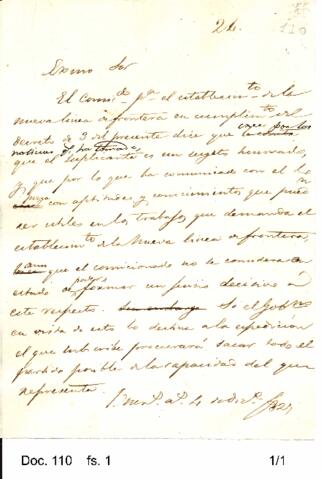 24.
110
Exmo Sor
El Comis.do p.a el establecim.to de la
nueva linea de frontera en cumplim.to del
decreto de 3 del presente dice que
cree por los
noticias q.e ha tomado,
que el suplicante es un sugeto honrado,
y que por lo que ha comunicado con el lo
juzga con aptitudes y conocimientos que pued.n
ser utiles en los trabajos que demanda el
establecim.to de la nueva linea de frontera,
aun que el comicionado no se considera en
estado de poder formar un juicio decisivo a
este respecto. Sin embargo Si el Gob.no
en vista de esto lo destina a la expedicion
el que subscribe procurará sacar todo el
partido posible de la capacidad del que
representa.
4 de 1824
Doc. 110 fs. 1 1/1